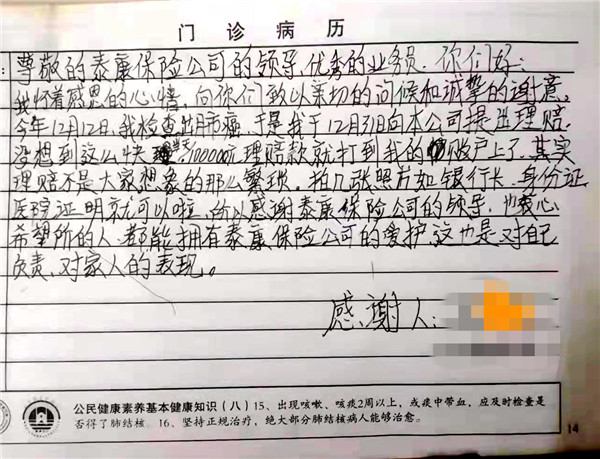 门诊病历
尊敬的泰康保险公司的领导、优秀的业务员.你们好:
我怀着感恩的心情,向你们致以亲切的问候和诚挚的谢意。
今年12月12日,我检查出肺癌,于是我于12月31日向本公司提出理赔.
没想到这么快 100000元理赔款就打到我的账户上了.其实
理赔不是大家想象的那么繁琐.拍几张照片如银行卡.身份证
医院证明就可以啦,所以感谢泰康保险公司的领导,也衷心
希望所的人都能拥有泰康保险公司的爱护,这也是对自己
负责,对家人的表现。
感谢人:
公民健康素养基本健康知识(八)15、出现咳嗽、咳痰2周以上,或痰中带血,应及时检查是
否得了肺结核。16、坚持正规治疗,绝大部分肺结核病人能够治愈。
14